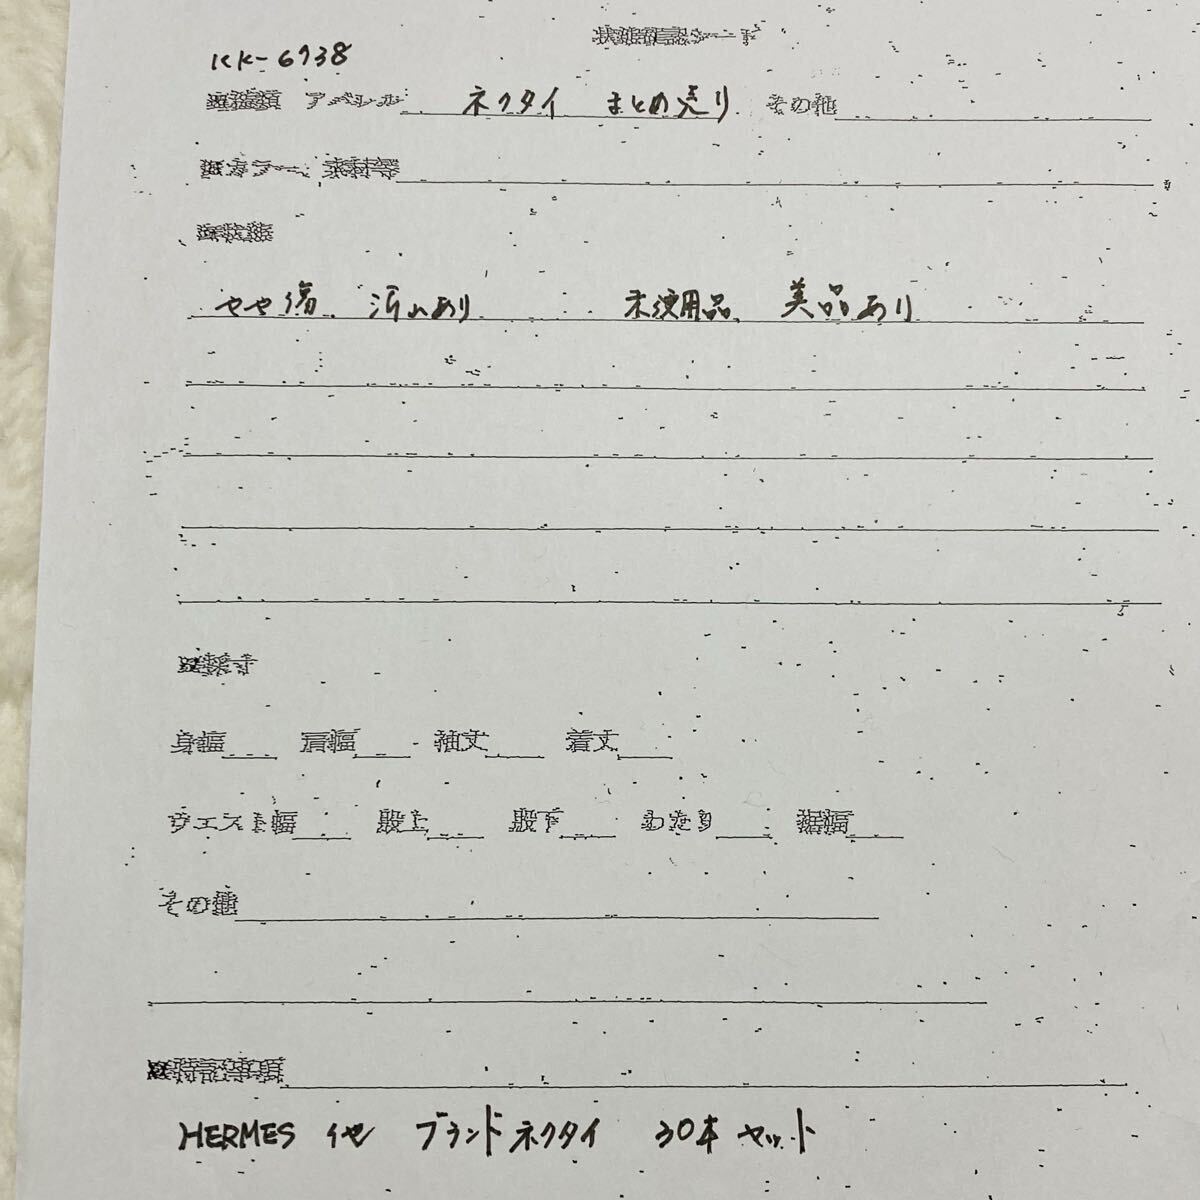 状態確認シート
KK-6938
※種類 アパレル ネクタイ まとめ売り その他
※カラー 素材等
※状態
やや傷、汚れあり 未使用品、美品あり
※採寸
身幅 肩幅 袖丈 着丈
ウエスト幅 股上 股下 わたり 裾幅
その他
※特記事項
HERMES 他 ブランドネクタイ 30本セット